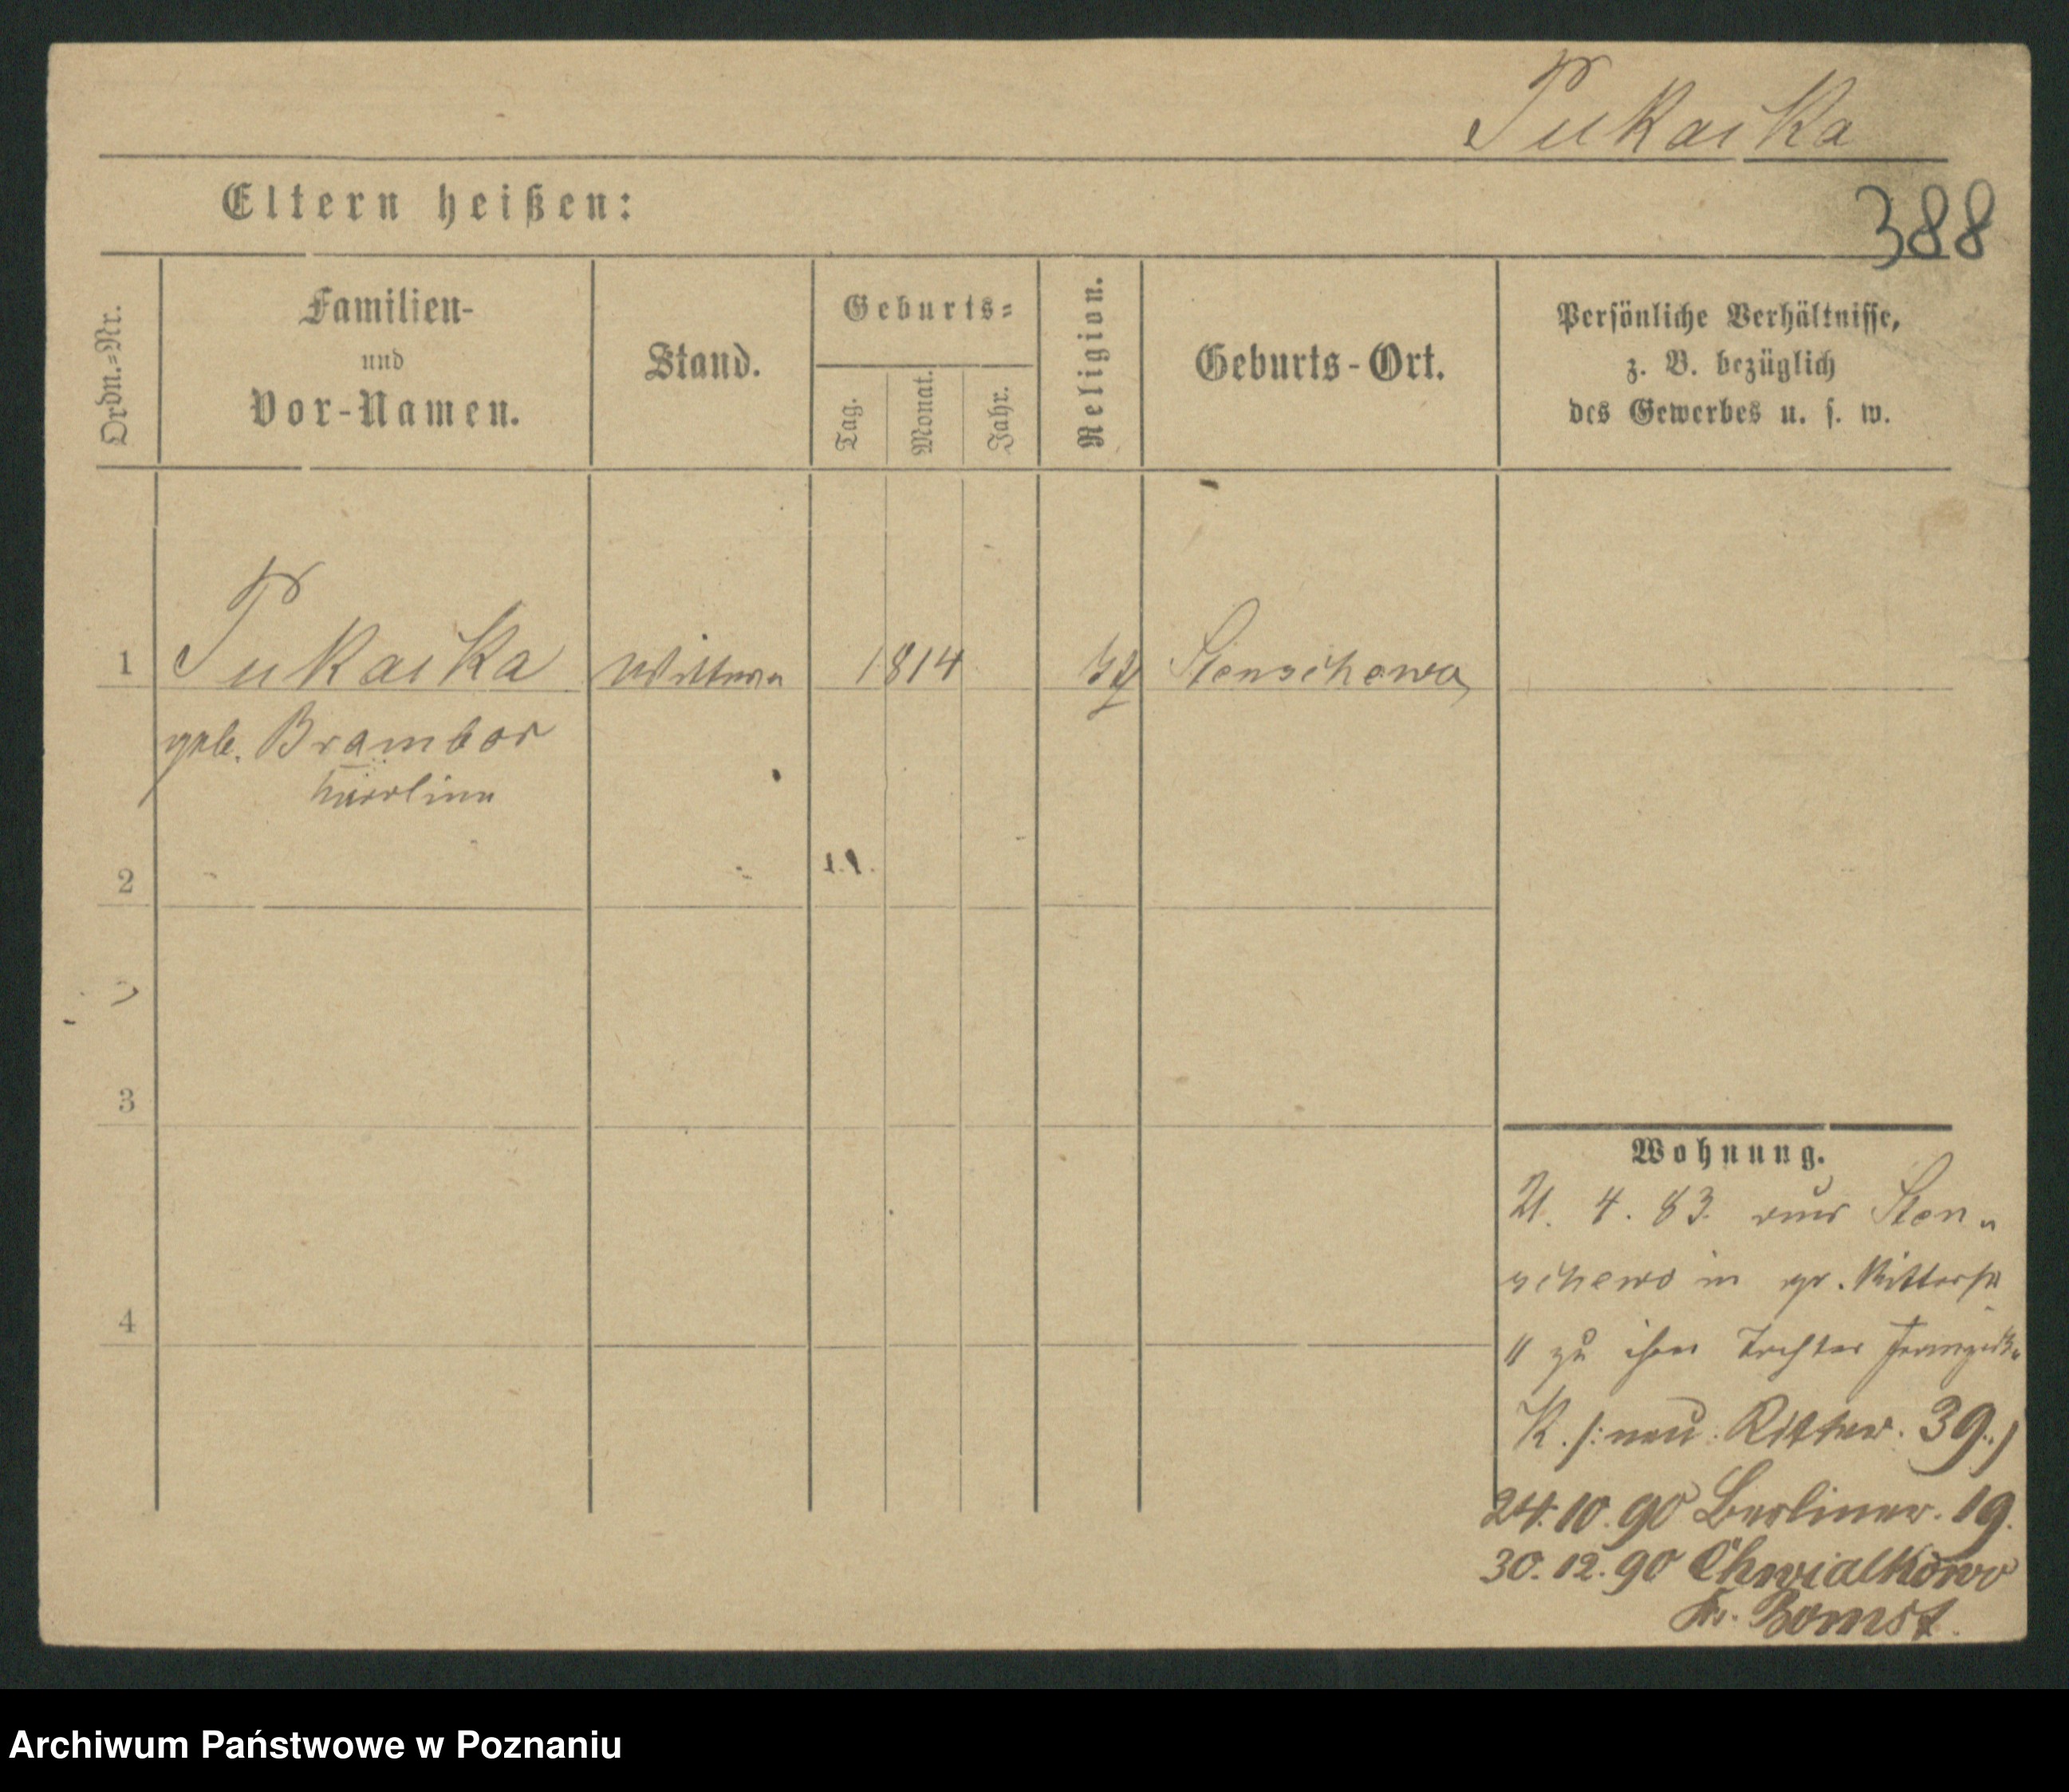 Pukacka
Eltern heißen:
388
Ordn.=Nr.
Familien-
und
Vor-Namen.
Stand.
Geburts=
Tag.
Monat.
Jahr.
Religion.
Geburts-Ort.
Persönliche Verhältnisse,
z. B. bezüglich
des Gewerbes u. s. w.
1 Pukacka Wittwe 1814 Stenschewo
geb. Brambor
2
3
4
Wohnung.
21. 4. 83. aus Sten„
schewo in gr. Ritterstr
" zu ihrer Tochter
K. /: neu: Ritter. 39 :/
24.10.90 Berliner. 19.
30.12.90 Chwialkowo
Kr. Bomst.
Archiwum Państwowe w Poznaniu